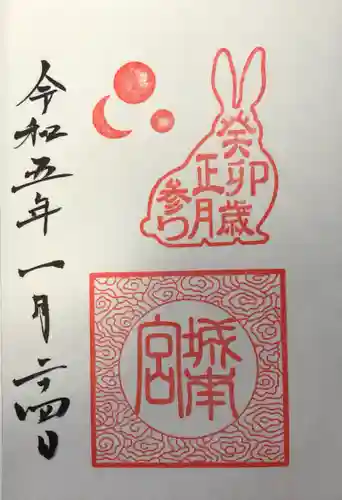 癸卯歳
正月
参り
城南
宮
令和五年一月二十四日